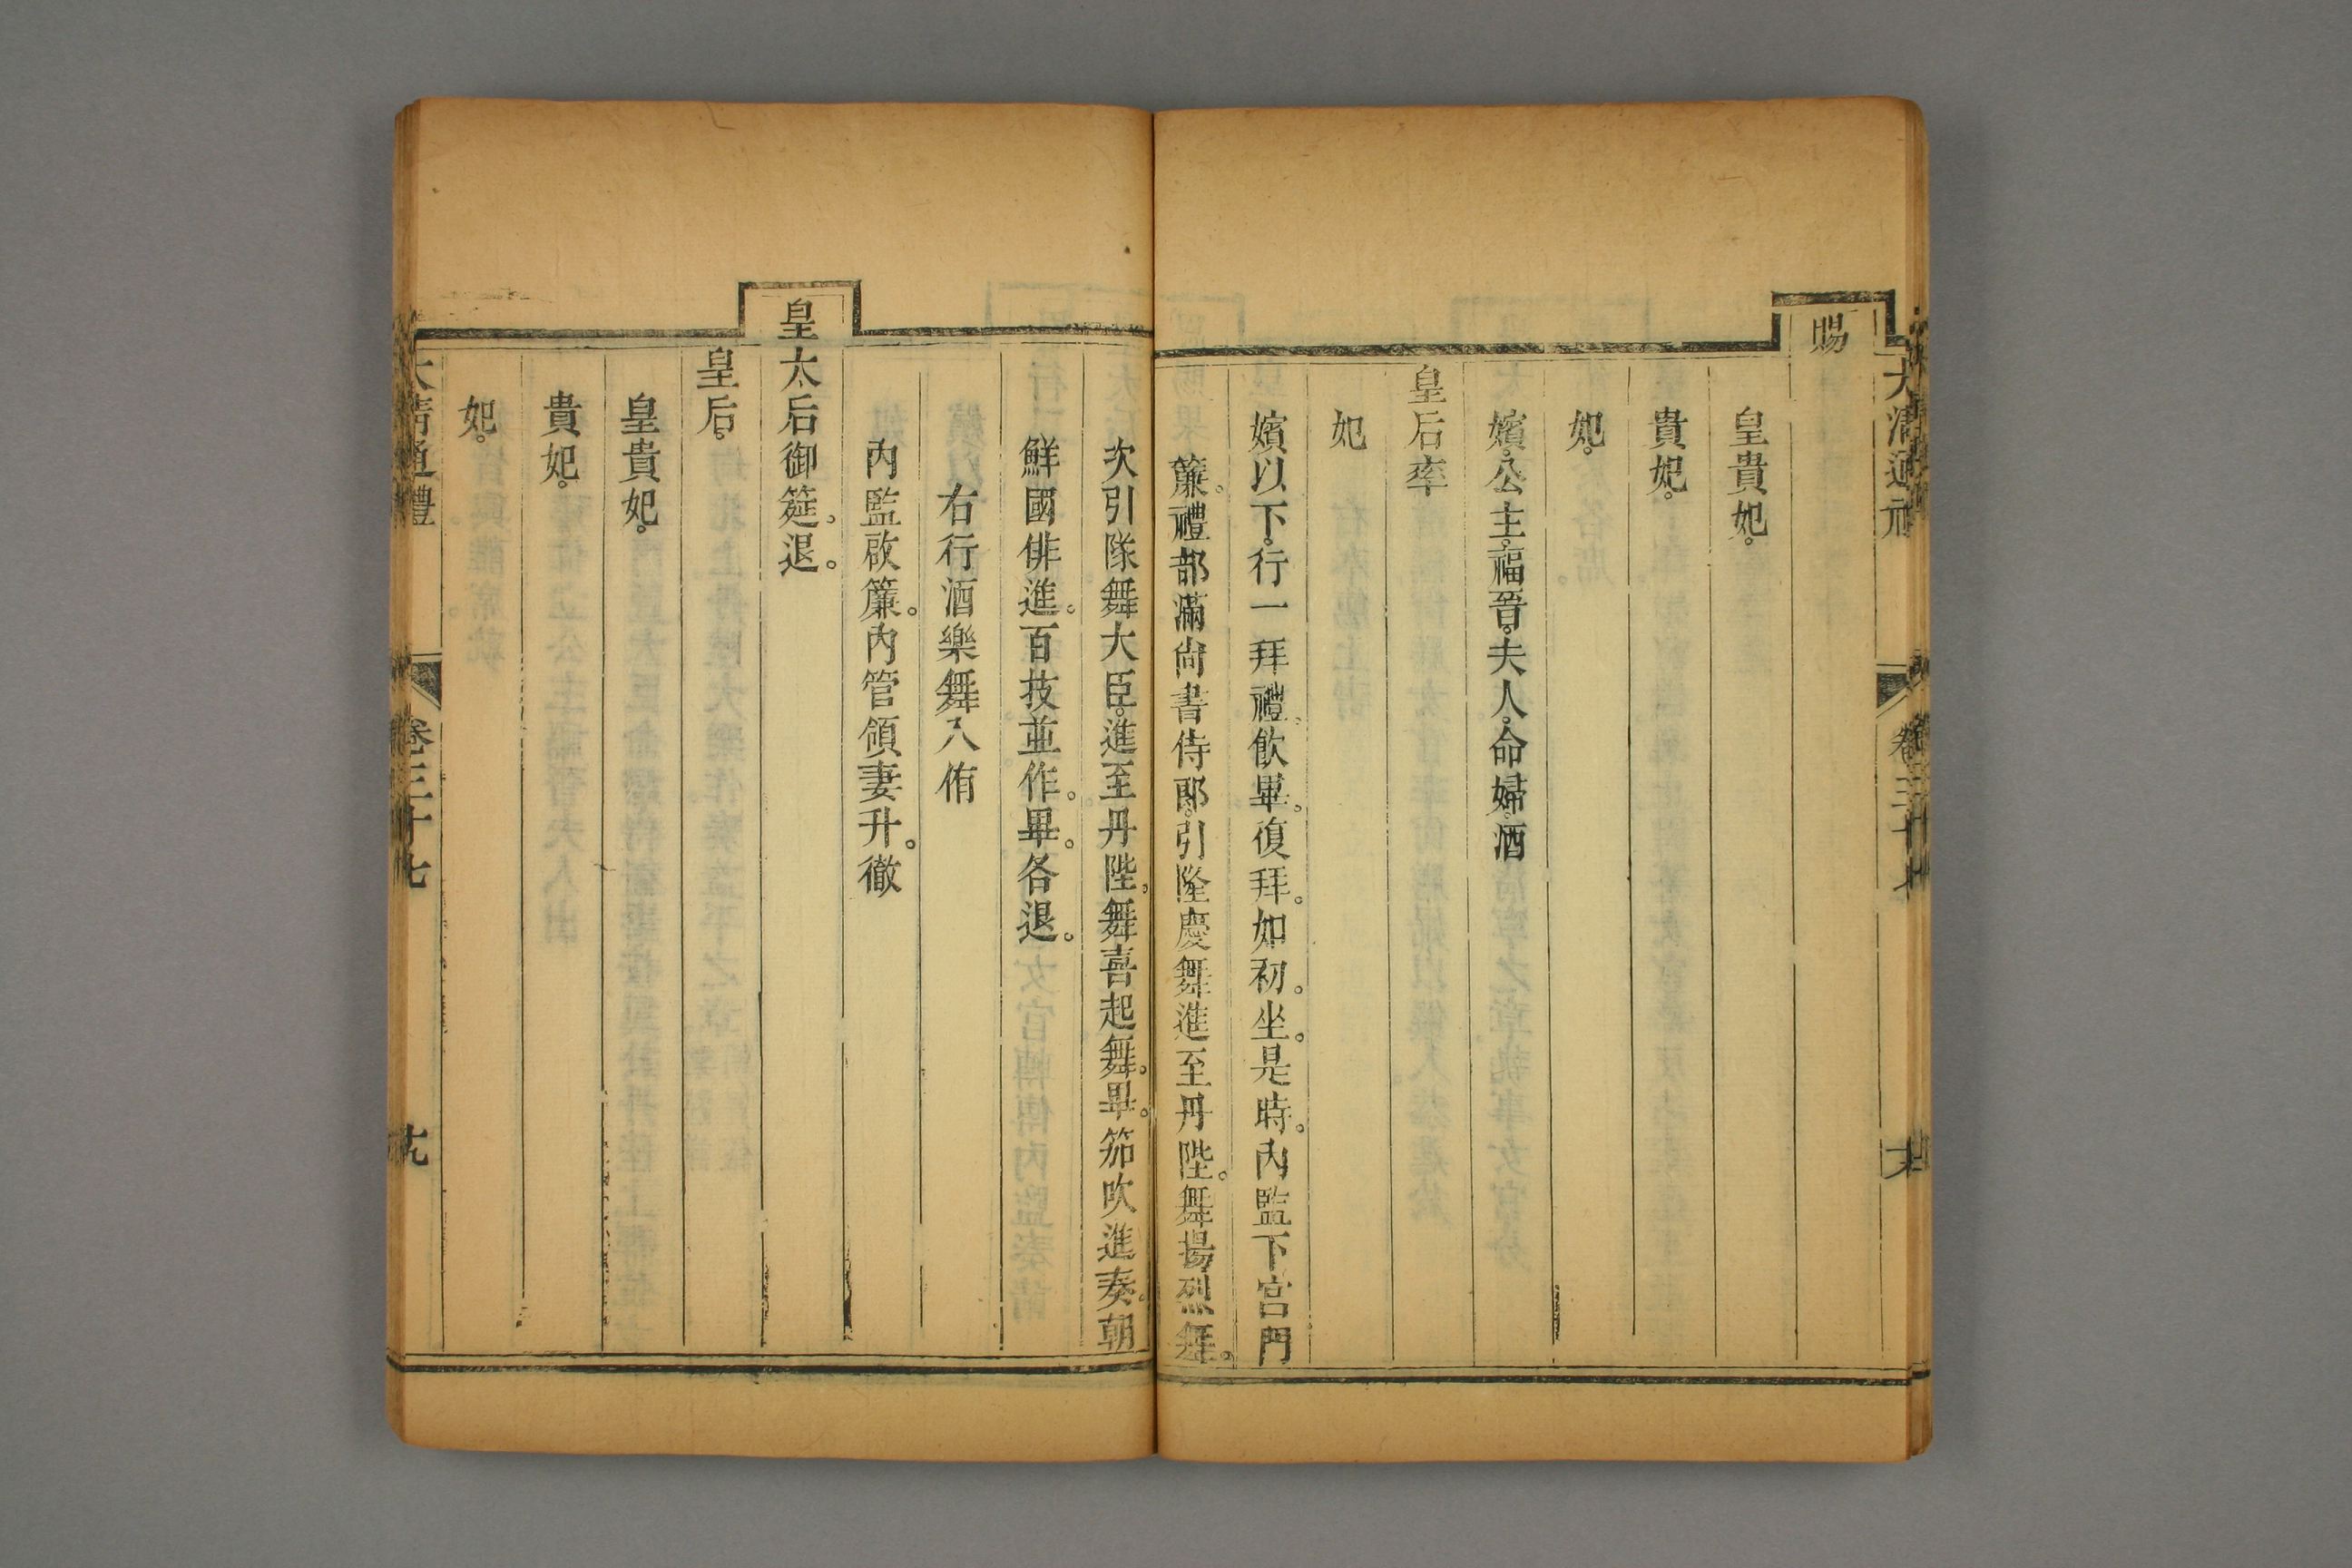 大清通禮 卷三十七
賜
皇貴妃。
貴妃。
妃。
嬪。公主。福晉。夫人。命婦。酒
皇后率
妃
嬪以下。行一拜禮。飲畢。復拜。如初。坐。是時。內監下宮門
簾。禮部滿尚書侍郎。引隆慶舞進至丹陛。舞揚烈舞。
次引隊舞大臣。進至丹陛。舞喜起舞。畢。笳吹進奏。朝
鮮國俳進。百技並作。畢。各退。
右行酒樂舞入侑
內監啟簾。內管領妻升。徹
皇太后御筵。退。
皇后。
皇貴妃。
貴妃。
妃。
大清通禮 卷三十七